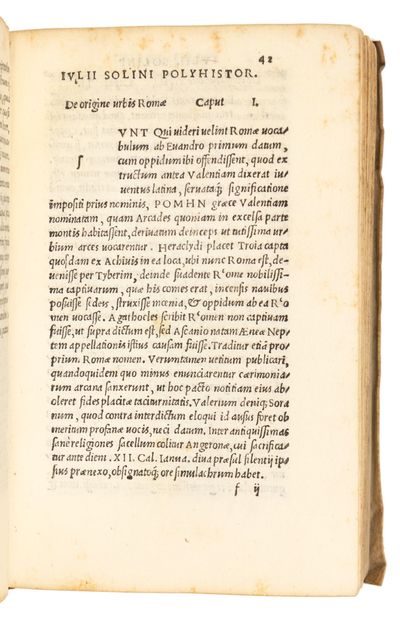 42
IVLII SOLINI POLYHISTOR.
De origine urbis Romæ Caput I.
VNT Qui uideri uelint Romæ uoca/
bulum ab Euandro primum datum,
ſ cum oppidum ibi offendissent, quod ex
tructum antea Valentiam dixerat iu/
uentus latina, seruataq; significatione
impositi prius nominis, POMHN græce Valentiam
nominatam, quam Arcades quoniam in excelsa parte
montis habitassent, deriuatum deinceps ut tutissima ur/
bium arces uocarentur. Heraclydi placet Troia capta
quosdam ex Achiuis in ea loca, ubi nunc Roma est, de/
uenisse per Tyberim, deinde suadente R'ome nobilissi/
ma captiuarum, quæ his comes erat, incensis nauibus
posuisse sedeis, struxisse mœnia, & oppidum ab ea R'o
men uocasse. Agathocles scribit R'omen non captiuam
fuisse, ut supra dictum est, sed Ascanio natam Æneæ Nep/
tem appellationis istius causam fuisse. Traditur etiā pro/
prium Romæ nomen. Verumtamen uetitum publicari,
quandoquidem quo minus enunciarentur cærimonia/
rum arcana sanxerunt, ut hoc pacto notitiam eius ab/
oleret fides placitæ taciturnitatis. Valerium deniq; Sora
num, quod contra interdictum eloqui id ausus foret ob
meritum profanæ uocis, neci datum. Inter antiquissimas
sanè religiones sacellum colitur Angeronæ, cui sacrifica/
tur ante diem. XII. Cal. Ianua. diua præsul silentij ip/
sius prænexo, obsignatoq; ore simulachrum habet.
f ij